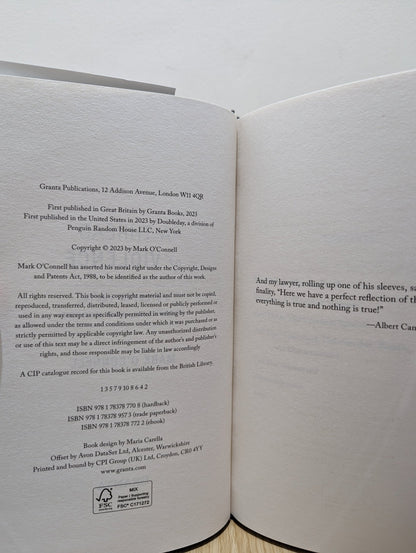 Granta Publications, 12 Addison Avenue, London W11 4QR
First published in Great Britain by Granta Books, 2023
First published in the United States in 2023 by Doubleday, a division of
Penguin Random House LLC, New York
Copyright © 2023 by Mark O'Connell
Mark O'Connell has asserted his moral right under the Copyright, Designs
and Patents Act, 1988, to be identified as the author of this work.
All rights reserved. This book is copyright material and must not be copied,
reproduced, transferred, distributed, leased, licensed or publicly performed or
used in any way except as specifically permitted in writing by the publisher,
as allowed under the terms and conditions under which it was purchased or as
strictly permitted by applicable copyright law. Any unauthorized distribution
or use of this text may be a direct infringement of the author's and publisher's
rights, and those responsible may be liable in law accordingly
A CIP catalogue record for this book is available from the British Library.
1 3 5 7 9 10 8 6 4 2
ISBN 978 1 78378 770 8 (hardback)
ISBN 978 1 78378 957 3 (trade paperback)
ISBN 978 1 78378 772 2 (ebook)
Book design by Maria Carella
Offset by Avon DataSet Ltd, Alcester, Warwickshire
Printed and bound by CPI Group (UK) Ltd, Croydon, CR0 4YY
www.granta.com
FSC
www.fsc.org
MIX
Paper | Supporting
responsible forestry
FSC® C171272
And my lawyer, rolling up one of his sleeves, sa
finality, "Here we have a perfect reflection of th
everything is true and nothing is true!"
—Albert Cam